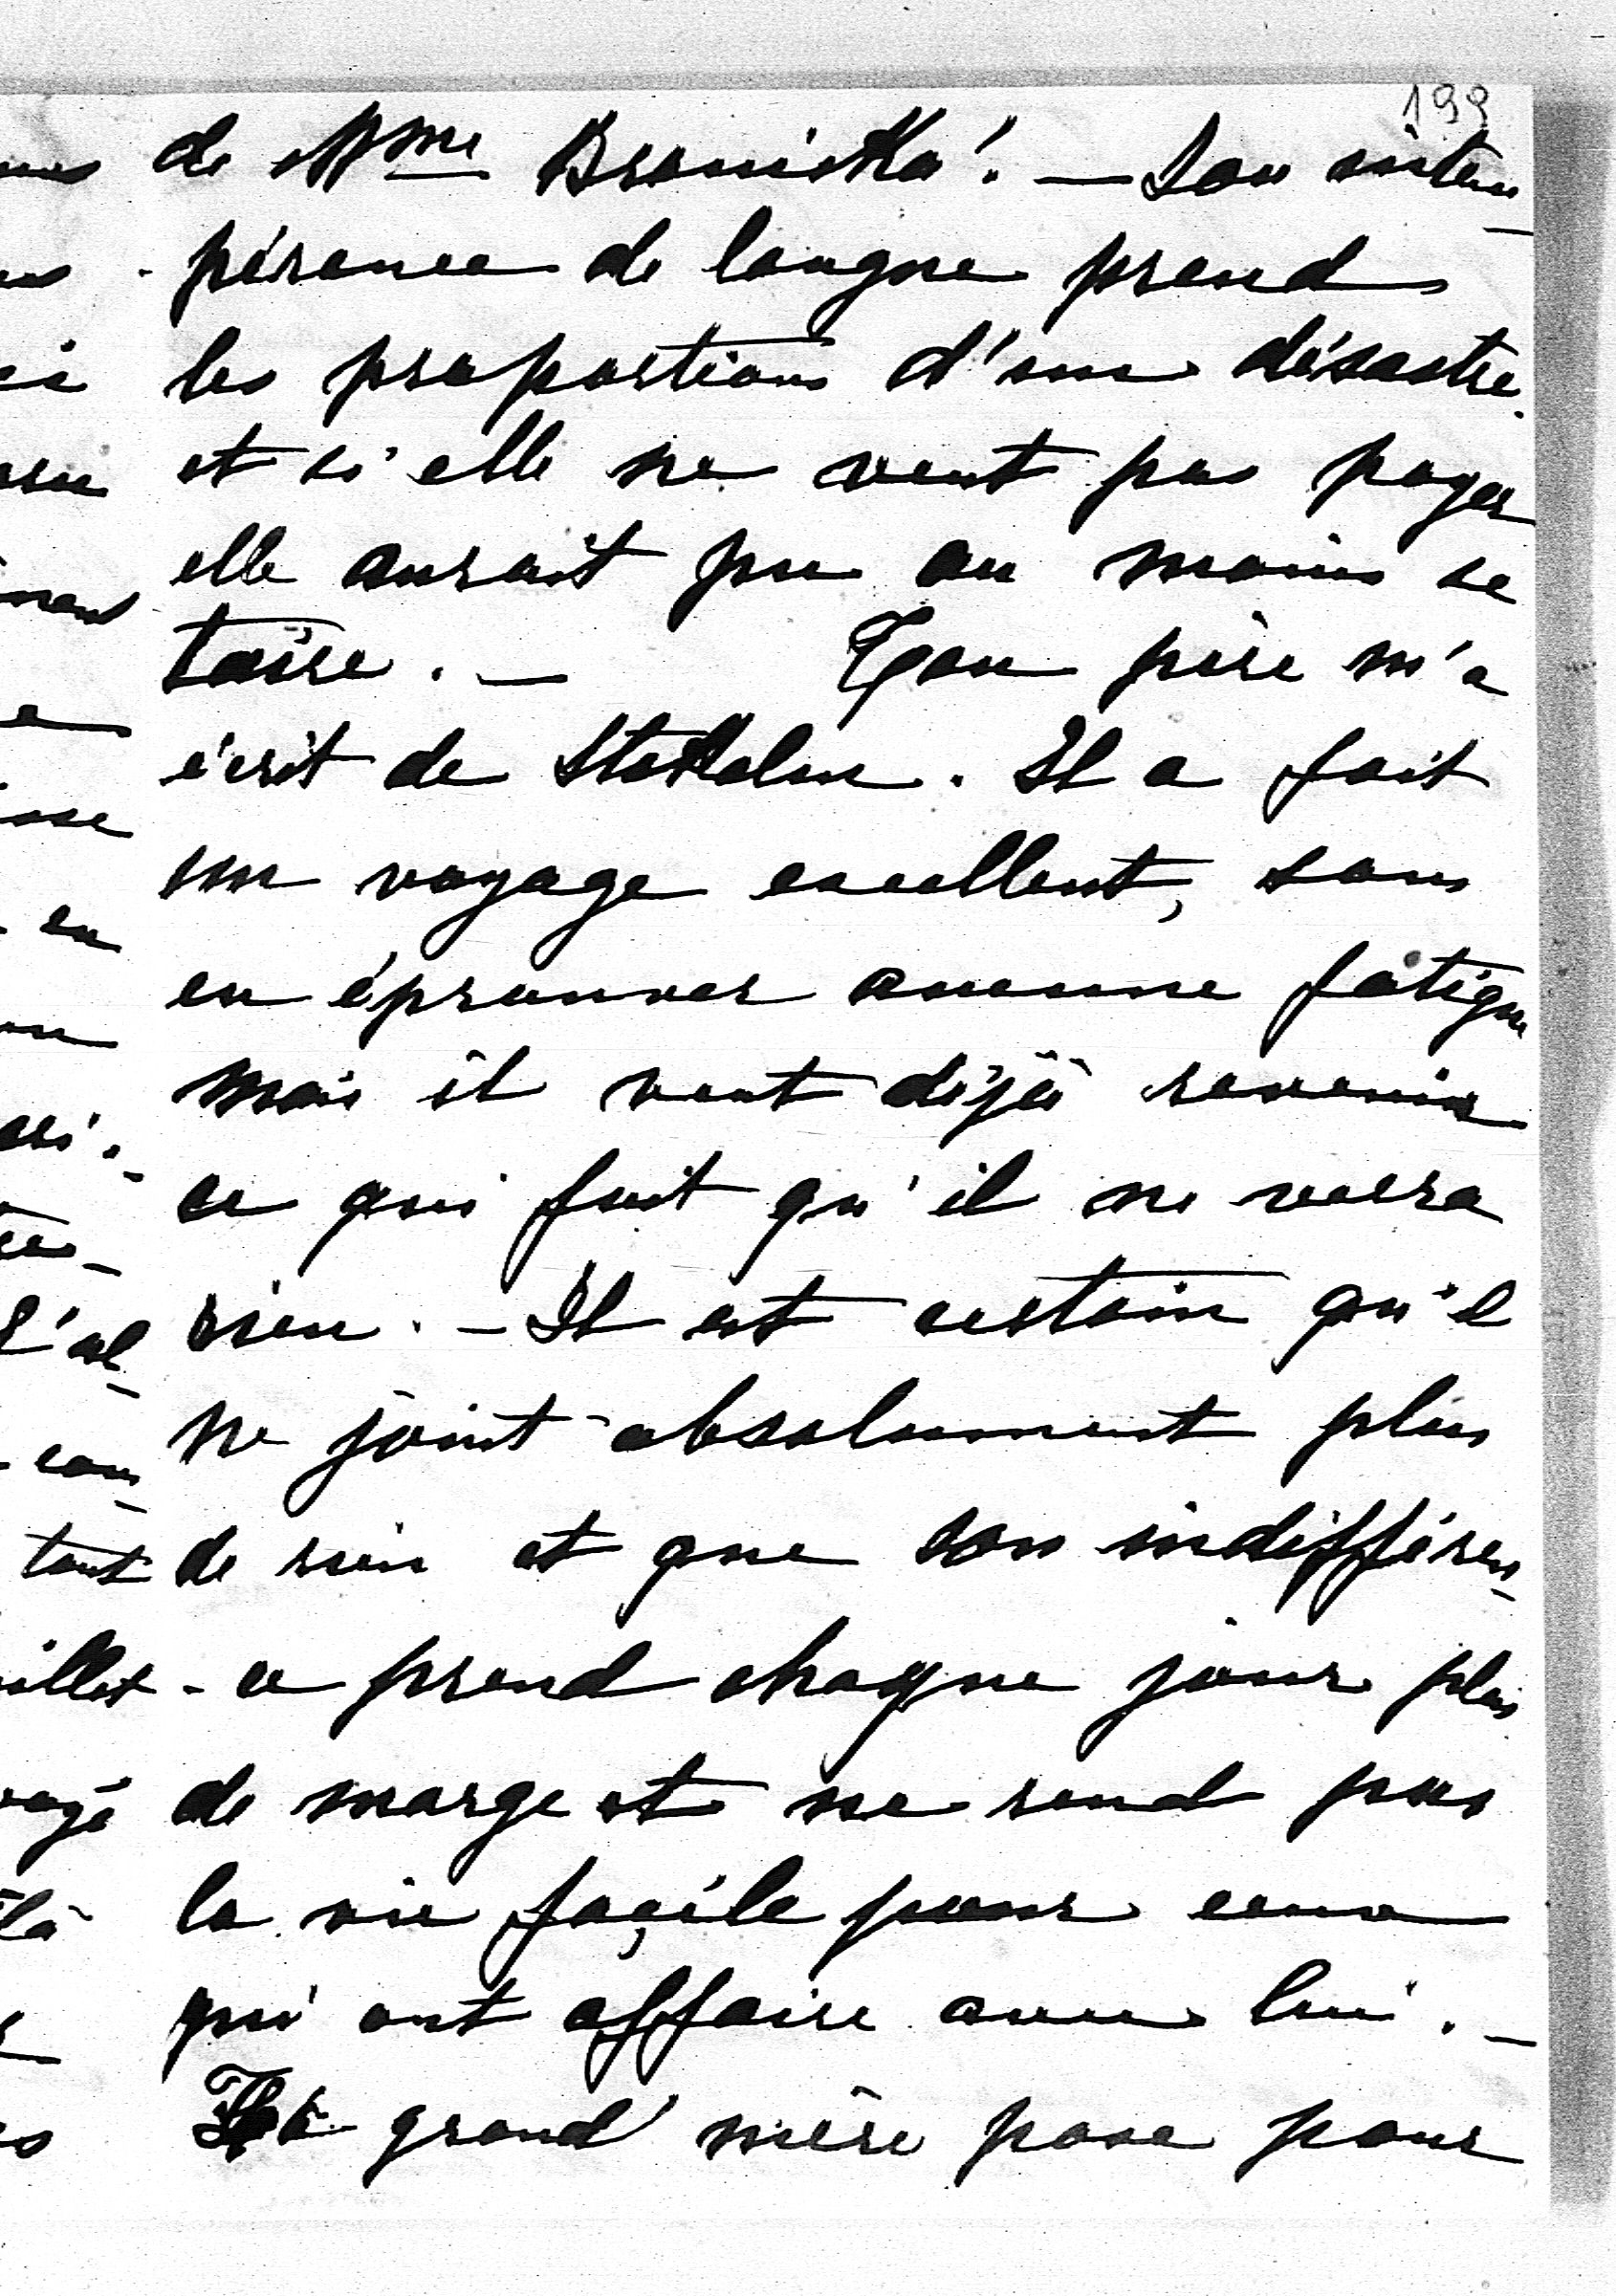 199
de Mme Broniska! — Son intem-
pérance de langue prend
les proportions d'un désastre.
et si elle ne veut pas payer
elle aurait pu au moins se
taire. — Ton père m'a
écrit de Stokolm. Il a fait
un voyage excellent, sans
en éprouver aucune fatigue
mais il veut déjà revenir
ce qui fait qu'il ne verra
rien. — Il est certain qu'il
ne jouit absolument plus
de rien et que son indifféren-
ce prend chaque jour plus
de marge et ne rend pas
la vie façile pour ceux
qui ont affaire avec lui. —
Ta grand'mère pose pour